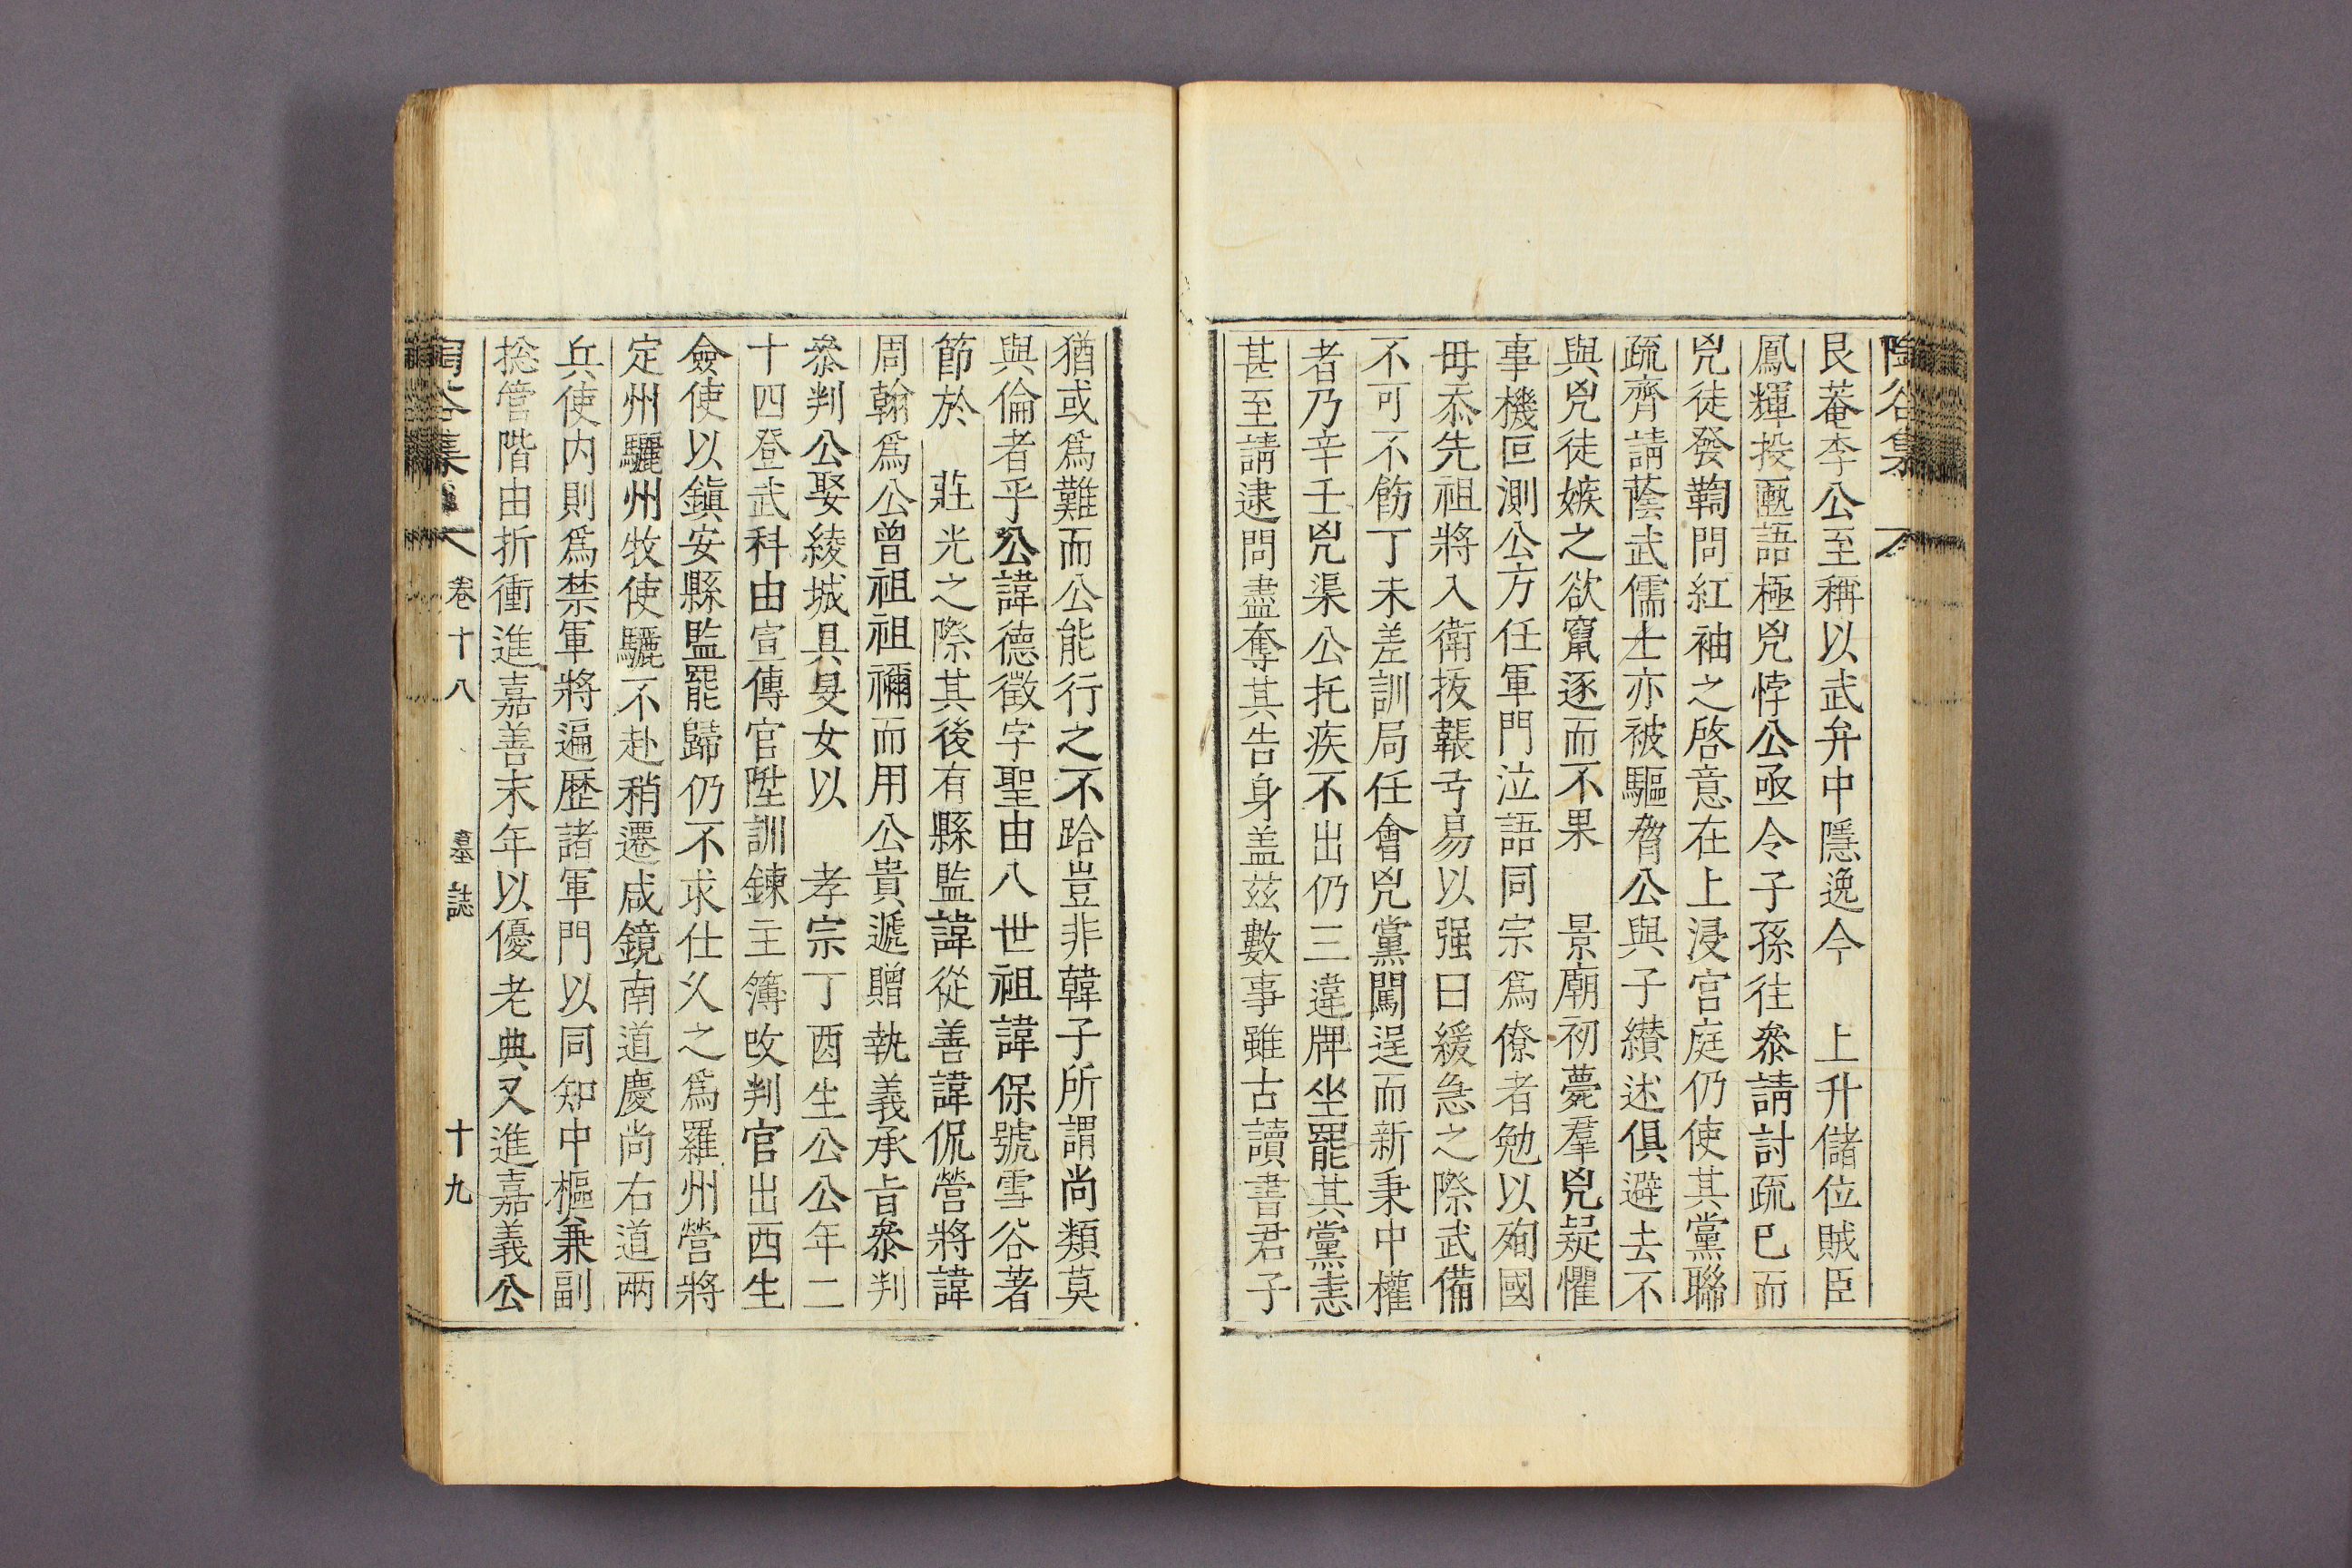 陶谷集
艮菴李公至稱以武弁中隱逸今 上升儲位賊臣
鳳輝投匭語極兇悖公亟令子孫往叅請討疏已而
兇徒發鞫問紅袖之啓意在上浸宮庭仍使其黨聯
疏齊請蔭武儒士亦被驅脅公與子纉述俱避去不
與兇徒嫉之欲竄逐而不果 景廟初薨羣兇疑懼
事機叵測公方任軍門泣語同宗爲僚者勉以殉國
毋忝先祖將入衛扱韔弓易以强曰緩急之際武備
不可不飭丁未差訓局任會兇黨闖逞而新秉中權
者乃辛壬兇渠公托疾不出仍三違牌坐罷其黨恚
甚至請逮問盡奪其告身盖茲數事雖古讀書君子
猶或爲難而公能行之不跲豈非韓子所謂尚類莫
與倫者乎公諱德徵字聖由八世祖諱保號雪谷著
節於 莊光之際其後有縣監諱從善諱侃營將諱
周翰爲公曾祖祖禰而用公貴遞贈執義承旨叅判
叅判公娶綾城具旻女以 孝宗丁酉生公公年二
十四登武科由宣傳官陞訓鍊主簿改判官出西生
僉使以鎭安縣監罷歸仍不求仕久之爲羅州營將
定州驪州牧使驪不赴稍遷咸鏡南道慶尚右道兩
兵使内則爲禁軍將遍歷諸軍門以同知中樞兼副
摠管階由折衝進嘉善末年以優老典又進嘉義公
陶谷集 卷十八 墓誌 十九